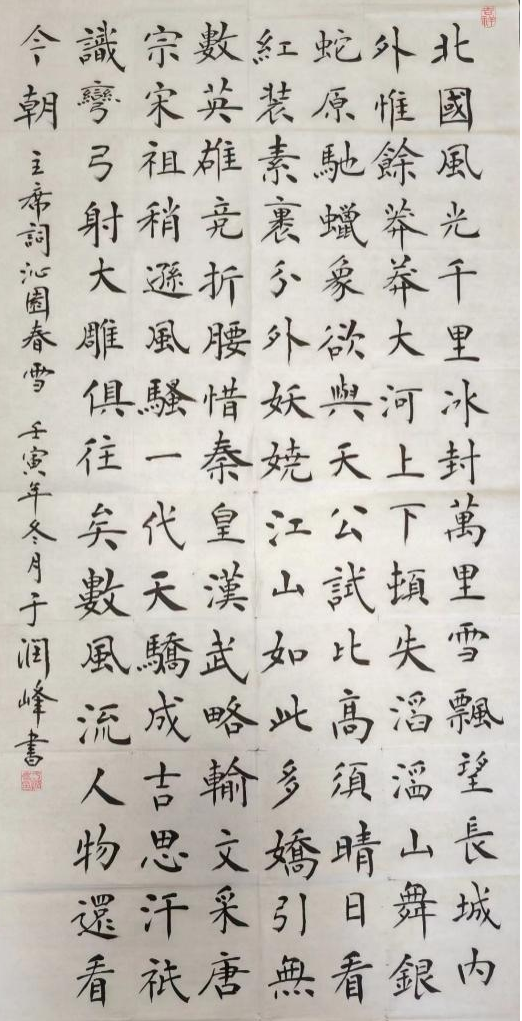 北國風光千里冰封萬里雪飄望長城内
外惟餘莽莽大河上下頓失滔滔山舞銀
蛇原馳蠟象欲與天公試比高須晴日看
紅装素裹分外妖嬈江山如此多嬌引無
數英雄竞折腰惜秦皇漢武略輸文采唐
宗宋祖稍遜風騷一代天驕成吉思汗祇
識彎弓射大雕俱往矣數風流人物還看
今朝 主席詞沁園春雪 壬寅年冬月于润峰書